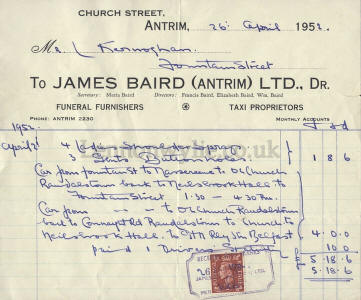 CHURCH STREET,
ANTRIM, 26 April 1952.
Mr L Kernoghan.
Fountain Street
To JAMES BAIRD (ANTRIM) LTD., DR.
Secretary: Meta Baird Directors: Francis Baird, Elizabeth Baird, Wm. Baird
FUNERAL FURNISHERS TAXI PROPRIETORS
PHONE: ANTRIM 2230 MONTHLY ACCOUNTS
1952 £ s d
April 21 4 Ladies Shoulder Sprays
3 Gents Button 1 8 6
Car from fountain St to Massereene to Ch Church
Randalstown back to Neilsbrook Hall to
Fountain Street 1.30 – 4.30 Pm.
Car from to Ch Church Randalstown
back to Connaught Rd Randalstown to Church to
Neilsbrook Hall. to Belfast 4 0 0
10 0
5 . 18 . 6
5 . 18 . 6